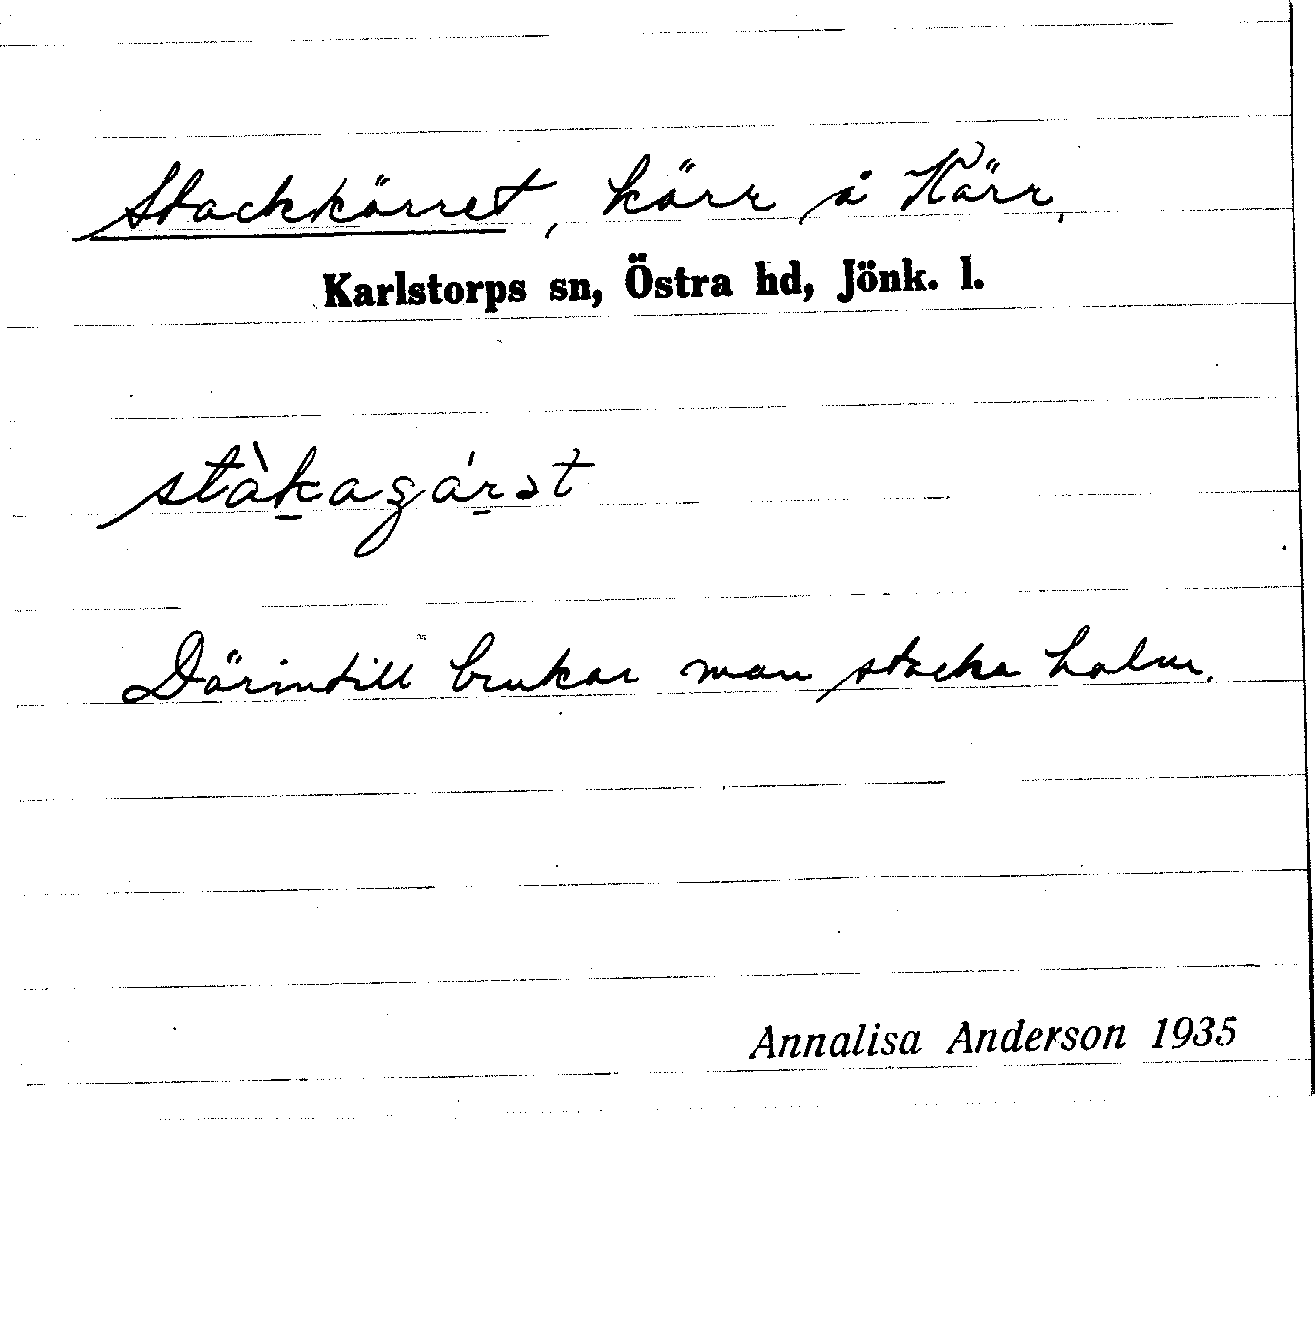 Stackkärret, kärr å Kärr.
Karlstorps sn, Östra hd, Jönk. l.
stàk̲agár̲ət
Därintill brukar man stacka halm.
Annalisa Anderson 1935